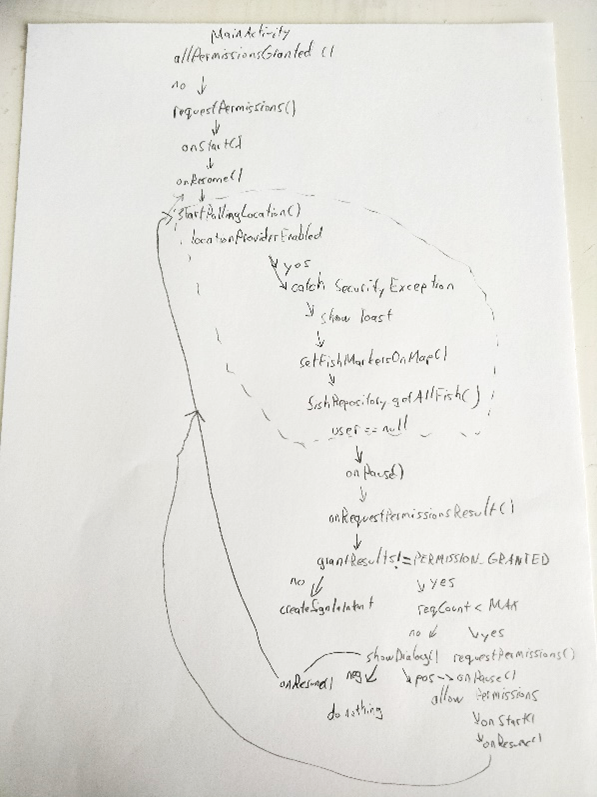 MainActivity
allPermissionsGranted ()
no
requestPermissions()
onStart()
onResume()
startPollingLocation()
locationProviderEnabled
yes
catch Security Exception
show toast
setFishMarkersOnMap()
fishRepository.getAllFish()
user == null
onPause()
onRequestPermissionsResult()
grantResults != PERMISSION_GRANTED
no
yes
createSignInIntent
reqCount < MAX
no
yes
showDialog() requestPermissions()
onResume() neg pos onPause()
allow Permissions
do nothing
onStart()
onResume()